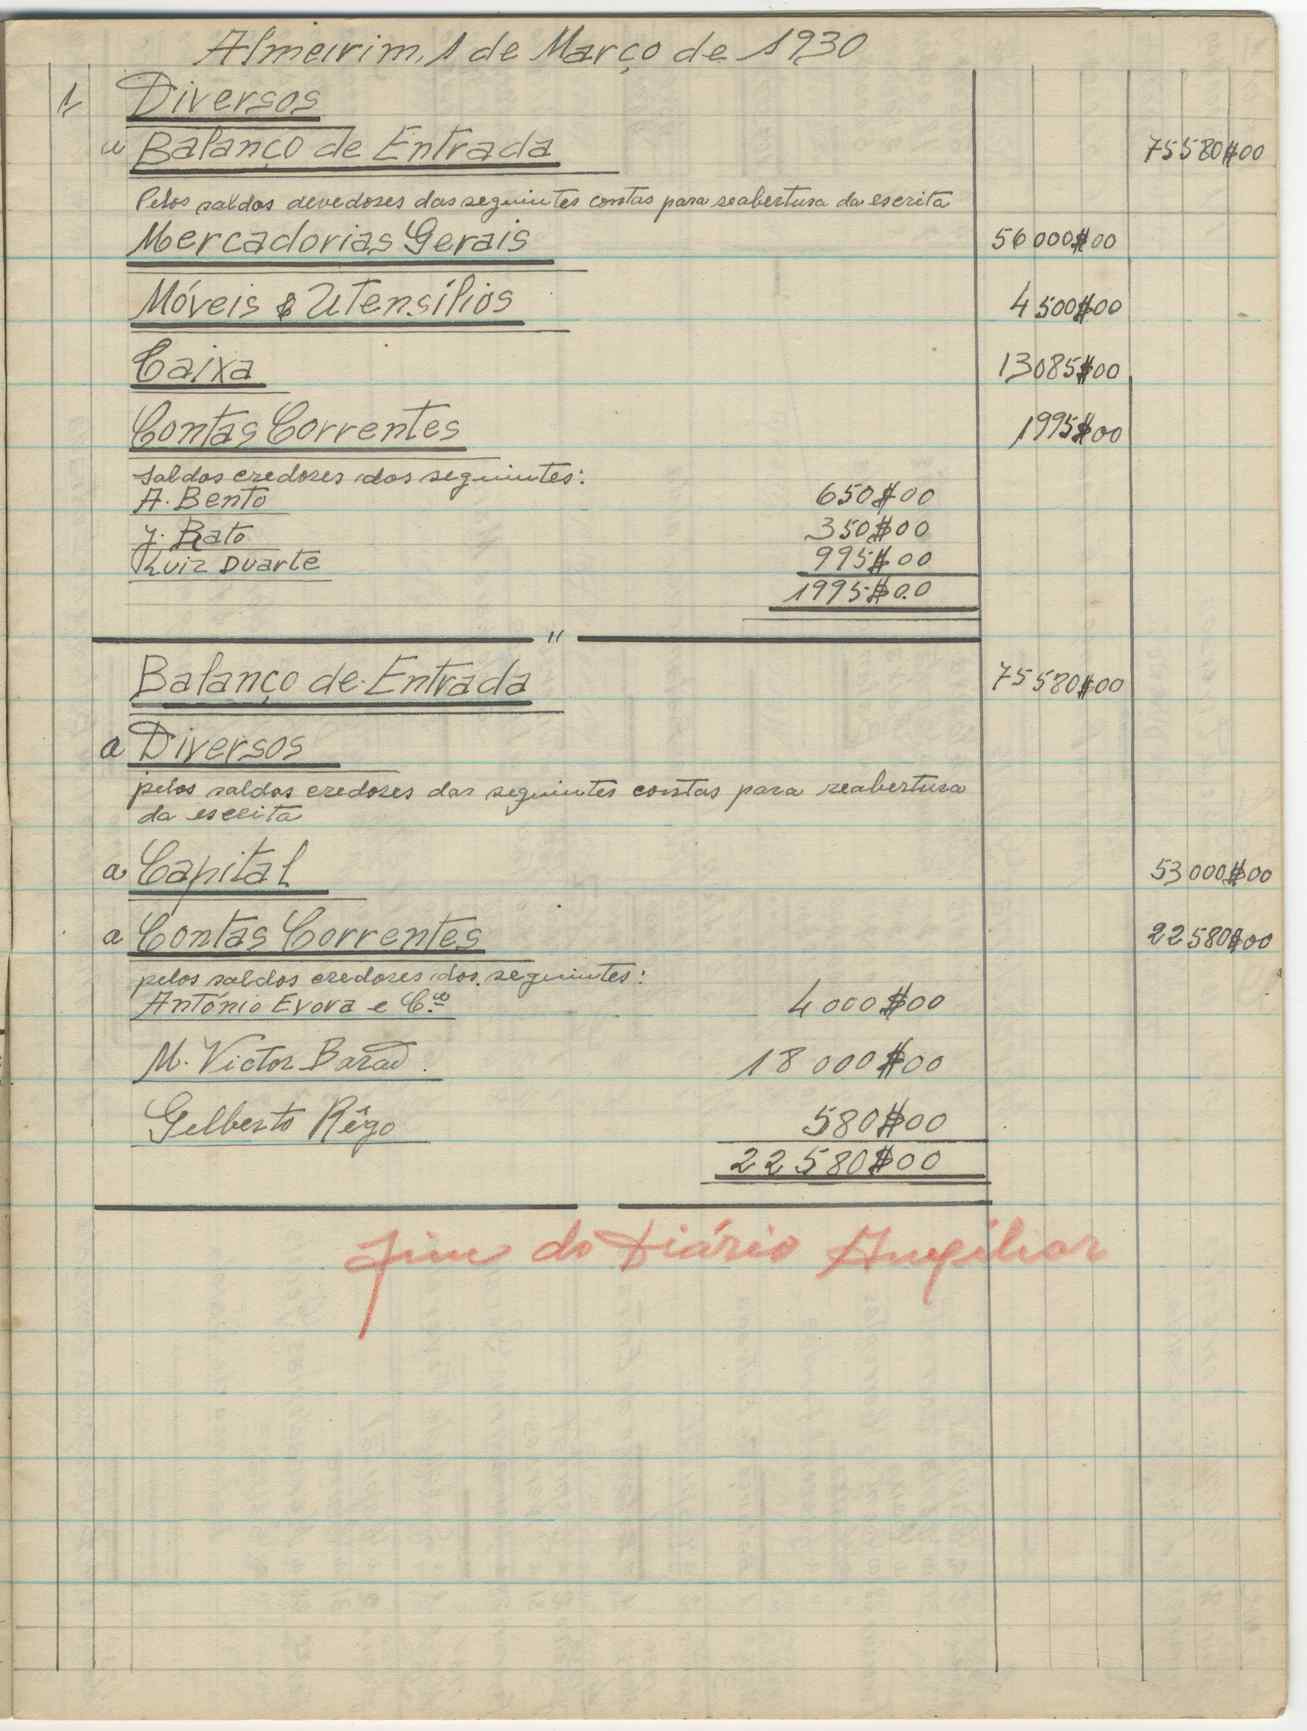 Almeirim, 1 de Março de 1930
1 Diversos
a Balanço de Entrada 75580$00
Pelos saldos devedores das seguintes contas para reabertura da escrita
Mercadorias Gerais 56000$00
Móveis & Utensílios 4500$00
Caixa 13085$00
Contas Correntes 1995$00
Saldos credores dos seguintes:
A. Bento 650$00
J. Rato 350$00
Luiz Duarte 995$00
1995$00
"
Balanço de Entrada 75580$00
a Diversos
pelos saldos credores das seguintes contas para reabertura
da escrita
a Capital 53000$00
a Contas Correntes 22580$00
pelos saldos credores dos seguintes:
António Evora e C.ª 4000$00
M. Victor 18000$00
Gilberto Rêgo 580$00
22580$00
Fim do Diário Auxiliar